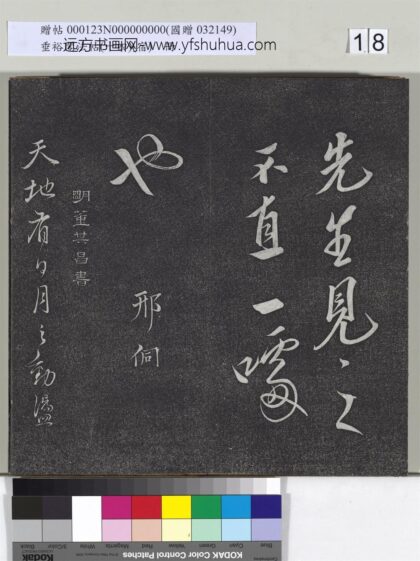 贈帖 000123N000000000(國贈 032149)
远方书画网 www.yfshuhua.com
18
先生見之
不直一噱
也
邢侗
明董其昌書
天地有日月之
Blue Cyan Green Yellow Red Magenta White 3/Color Black
KODAK Color Control Patches
Kodak